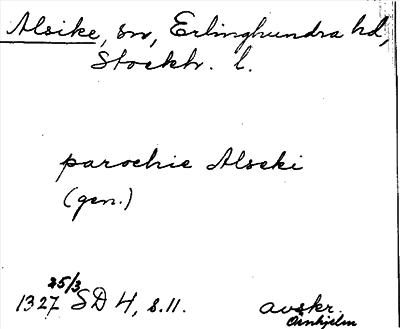 Alsike, sn, Erlinghundra hd,
Stockh. l.
parochie Alseki
(gen.)
1327 25/3 SD 4, s.11. avskr.
Örnhjelm